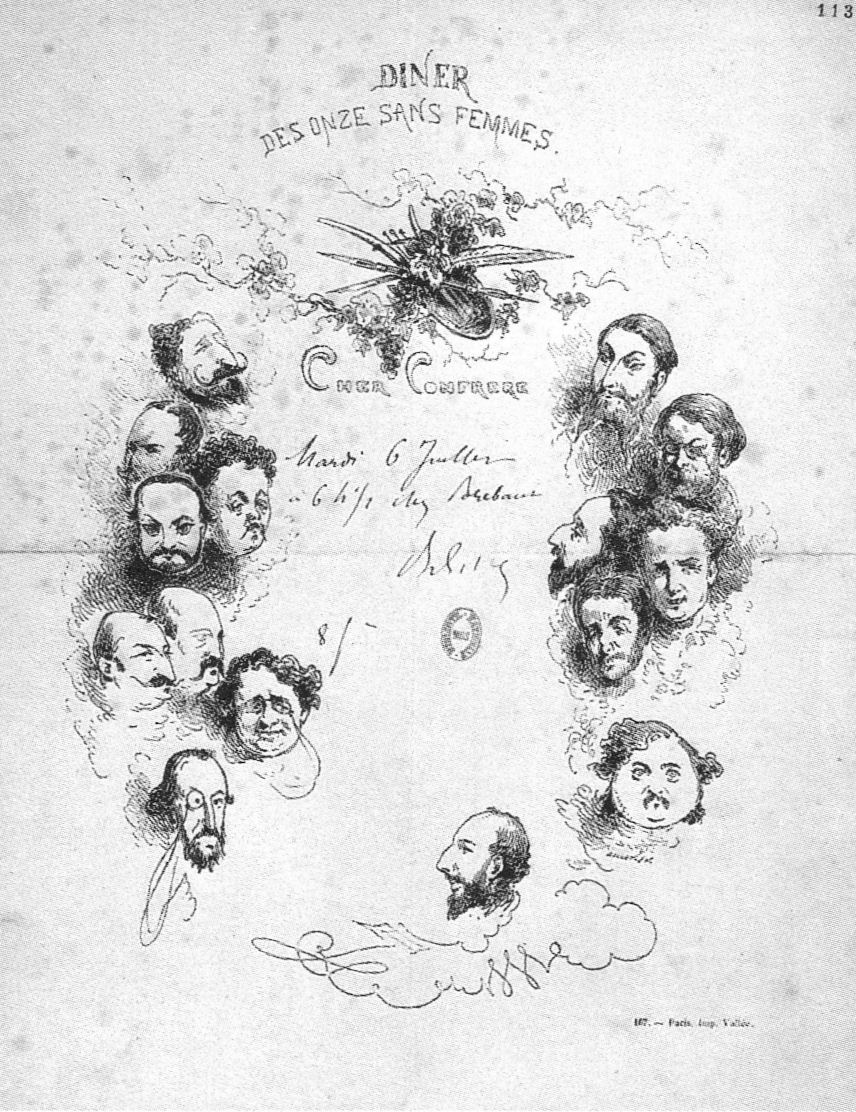 113
DINER
DES ONZE SANS FEMMES.
CHER CONFRERE
Mardi 6 Juillet
à 6 h 1/2 chez Brebant
8/-
167. — Paris. Imp. Vallée.